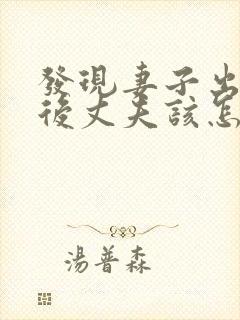 發現妻子出
後丈夫該怎
湯普森